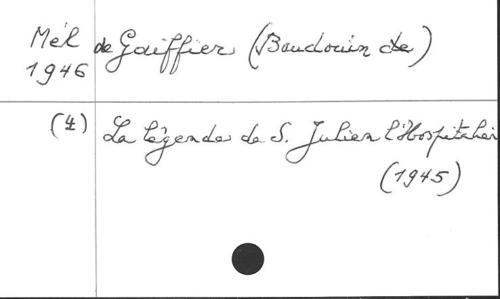 Mél de Gaiffier (Baudouin de)
1946
(4) La légende de S. Julien l'Hospitalier
(1945)